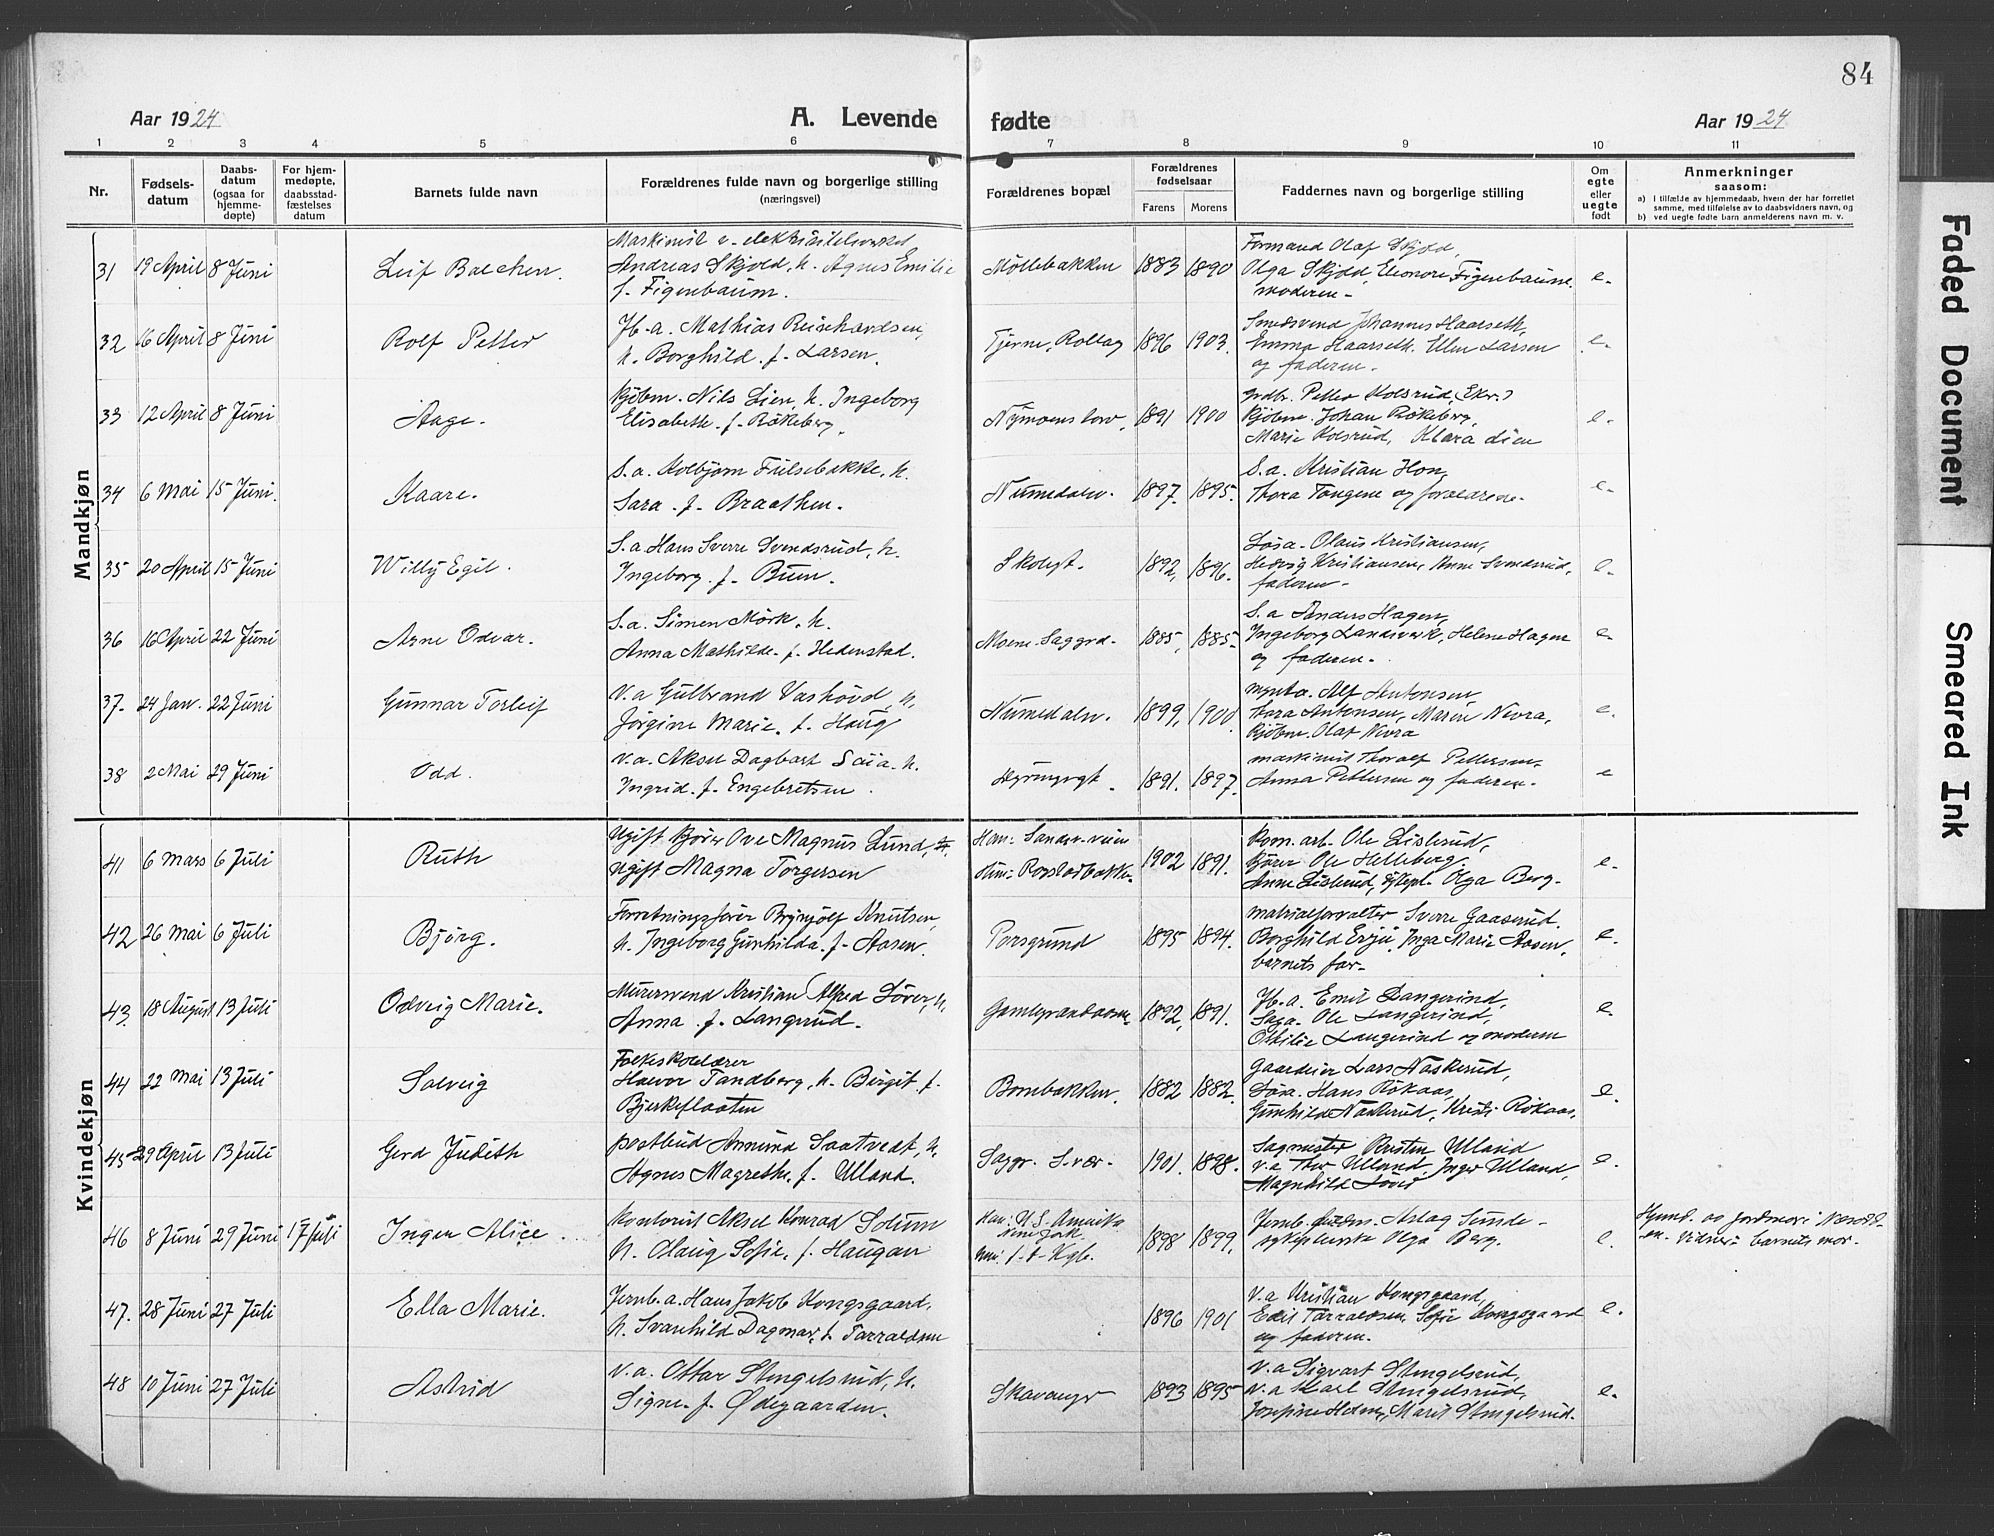 84
Aar 1924
A. Levende
fødte
Aar 1924
1 2 3 4 5 6 7 8 9 10 11
Nr.
Fødsels-
datum
Daabs-
datum
(ogsaa for
hjemme-
døpte)
For hjem-
medøpte,
daabsstad-
fæstelses
datum
Barnets fulde navn
Forældrenes fulde navn og borgerlige stilling
(næringsvei)
Forældrenes bopæl
Forældrenes
fødselsaar
Farens Morens
Faddernes navn og borgerlige stilling
Om
egte
eller
uegte
født
Anmerkninger
saasom:
a) I tilfælde av hjemmedaab, hvem der har forrettet
samme, med tilføielse av to daabsvidners navn, og
b) ved uegte fødte barn anmelderens navn m. v.
Mandkjøn
31 19 April 8 Juni Leif Balchen.
Maskinist v. elektrisitetsverket
Andreas Skjold, h. Agnes Emilie
f. Figenbaum.
Møllebakken 1883 1890
Formand Olaf Skjold,
Olga Skjold, Eleonore Figenbaum,
moderen-
e-
32 16 April 8 Juni Rolf Petter
Jb-a. Mathias Reinhardsen,
h. Borghild f. Larsen.
Fjerne, Rollag 1896 1903.
Smedsvend Johannes Haarseth,
Emma Haarseth. Ellen Larsen
og faderen-
e-
33 12 April 8 Juni Aage.
Kjøbm. Nils Lien, h. Ingeborg
Elisabeth f. Røkeberg.
1891 1900
grdbr. Petter Kolsrud,
Kjøbm. Johan Røkeberg,
Marie Kolsrud, Klara Lien
e-
34 6 Mai 15 Juni. Kaare.
S.a. Kolbjørn Fulsebakke, h.
Sara f. Braathen.
Numedalsv. 1897. 1895.
S.a. Kristian Hon,
Thora Tangene og forældrene-
e-
35 20 April 15 Juni Willy Egil.
S.a. Hans Sverre Svendsrud, h.
Ingeborg f. Buen.
Skolegt. 1892, 1896.
Løsa. Olaus Kristiansen,
Hedvig Kristiansen, Anne Svendsrud,
faderen-
e-
36 16 April 22 Juni Arne Odvar.
S.a. Simen Mørk, h.
Anna Mathilde f. Hedenstad.
Moene Saggrd. 1885, 1885.
S.a Anders Hagen,
Ingeborg Landsverk, Helene Hagen
og faderen-
e-
37. 24 Jan. 22 Juni Gunnar Torleif
V.a Gulbrand Vashovd, h.
Jørgine Marie f. Haug
Numedalsv. 1899, 1900
Alf Antonsen,
Thora Antonsen, Maren Nevra,
Kjøbm. Olaf Nevra
e.
38 2 Mai 29 Juni Odd.
V.a. Aksel Dagbart h.
Ingrid f. Engebretsen.
1891. 1897.
maskinist Thoralf Pettersen,
Anna Pettersen og faderen-
e
Kvindekjøn
41 6 mars 6 Juli Ruth
Ugift Kjører Ove Magnus Lund, &
ugift Magna Torgersen
1902 1891.
Kom. arb. Ole Lislerud,
Kjører Ole Helleberg.
Anne Lislerud, Sykepl. Olga Berg.
e-
42 26 Mai 6 Juli Bjørg.
Forretningsfører Brynjolf Knutsen,
h. Ingeborg Gunhilda f. Aasen.
Porsgrund 1895 1894.
Materialforvalter Sverre Gaaserud.
Borghild Inga Marie Aasen,
barnets far-
e.
43. 18 August 13 Juli Odveig Marie.
Murersvend Kristian Alfred Løver, h.
Anna f. Langerud.
1892, 1891.
Jb.a. Emil Langerud,
Ole Langerud,
Othilie Langerud og moderen
e-
44 22 Mai 13 Juli Solveig
Folkeskolelærer
Halvor Tandberg, h. Birgit f.
Bjerkeflaaten
Bombakken. 1882 1882.
Gaardeier Lars Naskerud,
Løsa. Hans Røkaas,
Gunhild Naskerud, Kristi Røkaas,
e.
45 29 April 13 Juli Gerd Judith
postbud Amund Saatvedt, h.
Agnes Magrethe f. Ulland.
Saggr. Svær. 1901. 1898.
Sagmester Ulland
V.a Thor Ulland, Inger Ulland,
Magnhild
e.
46 8 Juni 29 Juni 17 Juli Inger Alice.
Kontorist Aksel Konrad Solum
h. Olaug Sofie f. Haugan
Han: U.S. Amerika
New York
1898 1899,
Aslag Sunde-
sykepleierske Olga Berg.
e.
Hjemd. av jordmor
Vidner: barnets mor.
47. 28 Juni 27 Juli Ella Marie.
Jernb.a. Hans Jakob Kongsgaard,
h. Svanhild Dagmar f. Tarraldsen
1896 1901
V.a Kristian Kongsgaard,
Edit Tarraldsen, Sofie Kongsgaard
og faderen-
e.
48 10 Juni 27 Juli Astrid
V.a. Ottar Stengelsrud, h.
Signe f. Ødegaarden.
Skavanger 1893 1895
V.a Sigvart Stengelsrud,
V.a Karl Stengelsrud,
Josefine Marit Stengelsrud.
e-
Faded Document
Smeared Ink